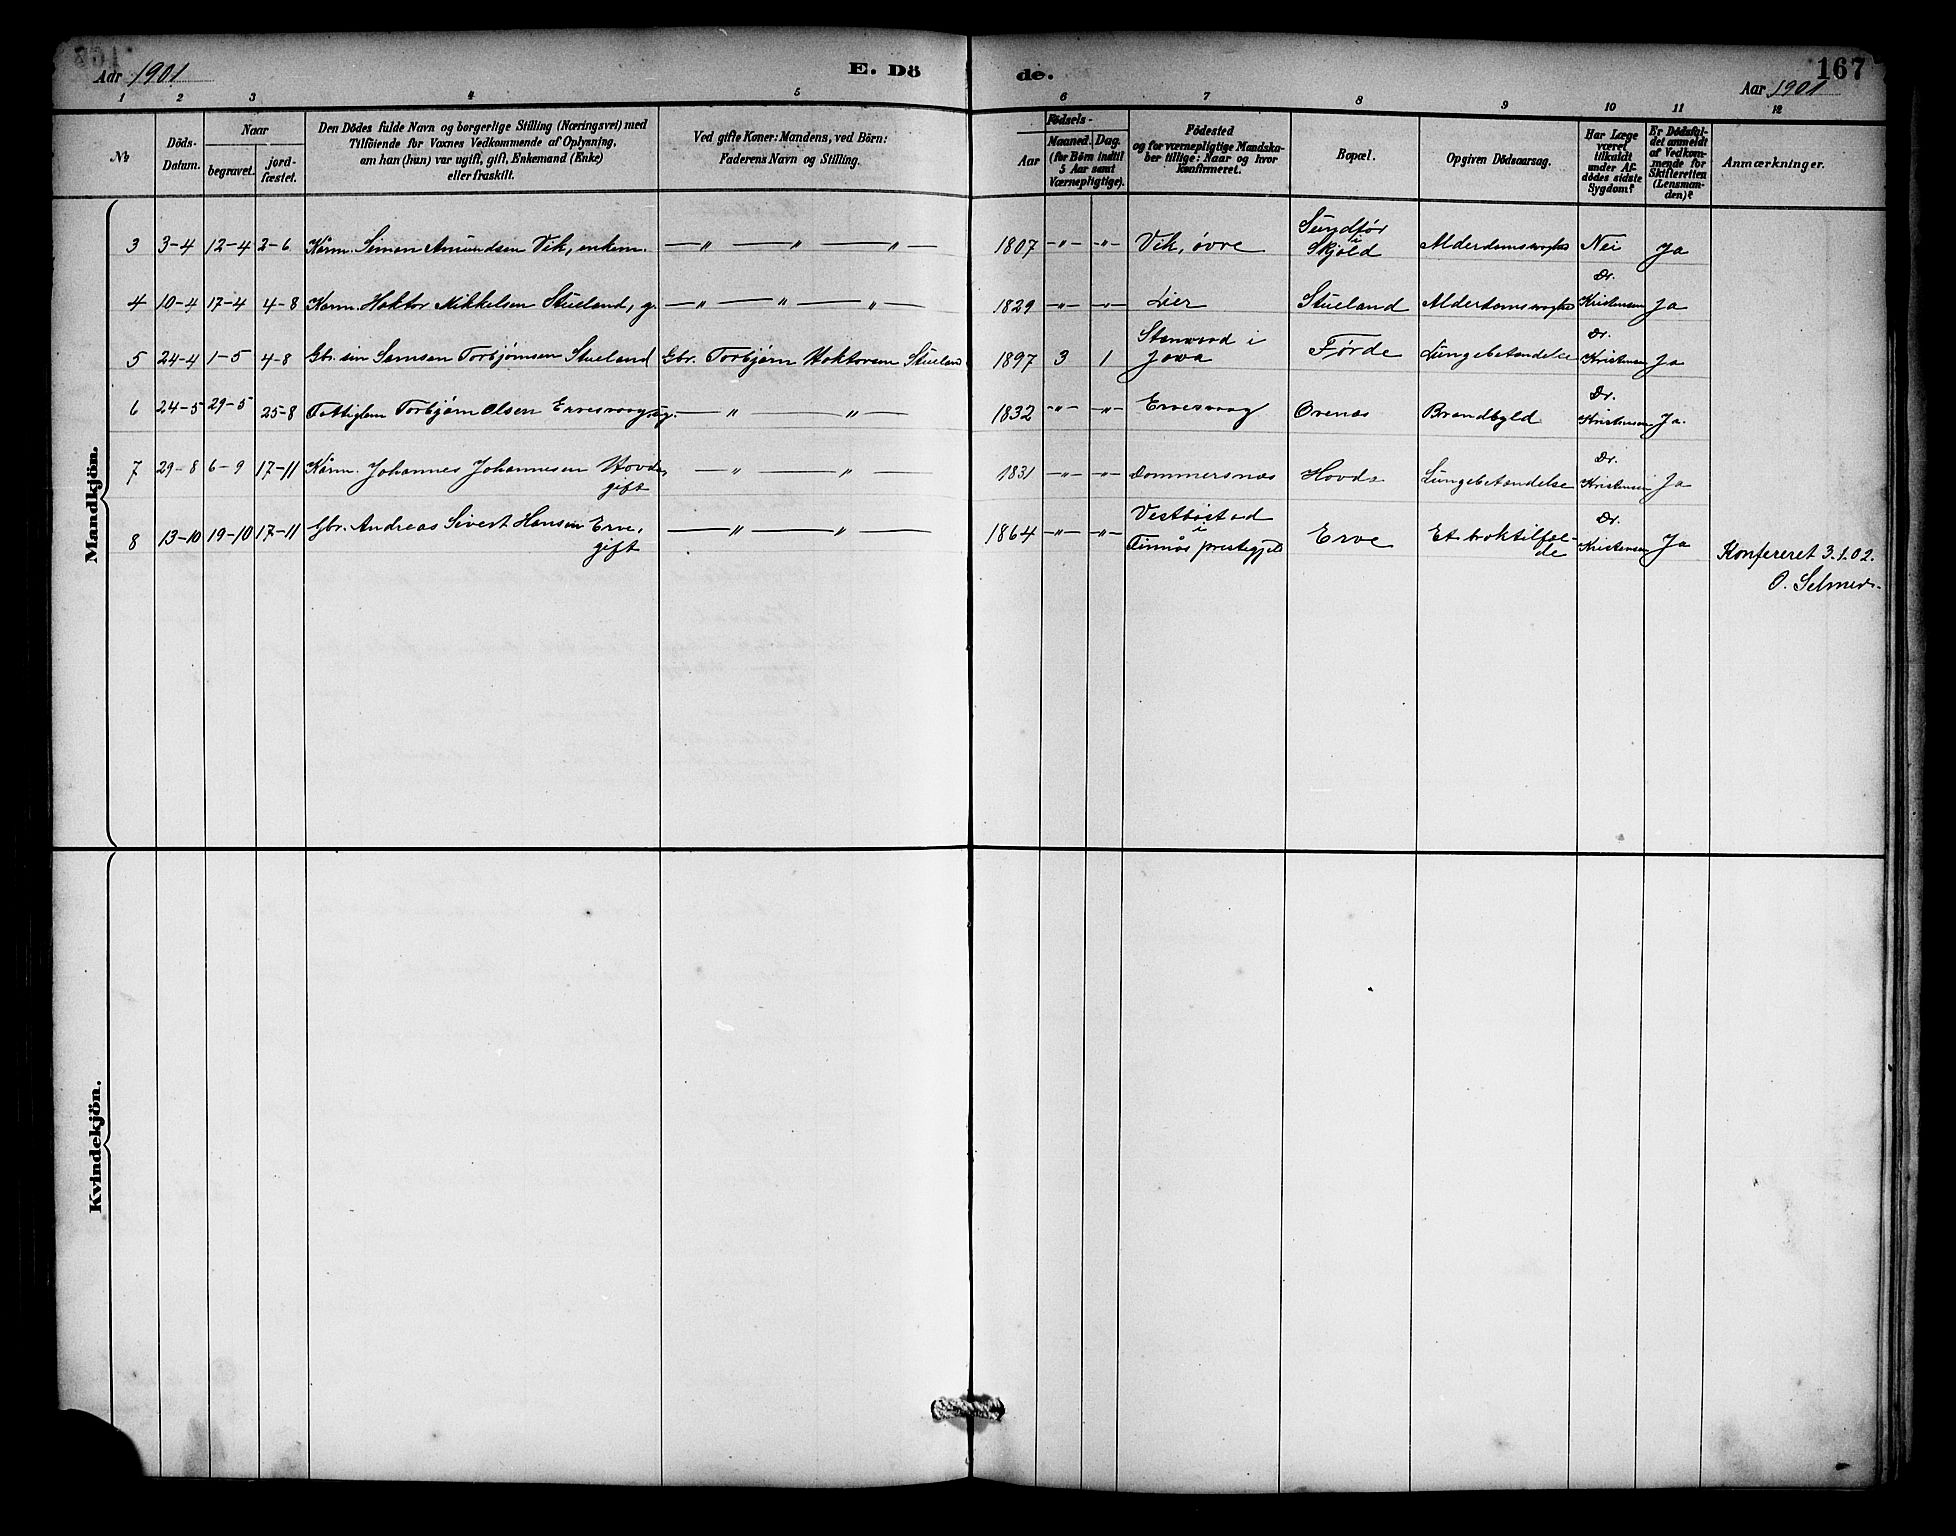 Aar 1901
E. Dö
de.
167
Aar 1901
1 2 3 4 5 6 7 8 9 10 11 12
No
Döds-
Datum.
Naar
begravet.
jord-
fæstet.
Den Dödes fulde Navn og borgerlige Stilling (Næringsvei) med
Tilföiende for Voxnes Vedkommende af Oplysning,
om han (hun) var ugift, gift, Enkemand (Enke)
eller fraskilt.
Ved gifte Koner: Mandens, ved Börn:
Faderens Navn og Stilling.
Födsels-
Aar
Maaned.
Dag.
(for Börn indtil
5 Aar samt
Værnepligtige).
Födested
og for værnepligtige Mandska-
ber tillige: Naar og hvor
konfirmeret.
Bopæl.
Opgiven Dödsaarsag.
Har Læge
været
tilkaldt
under Af-
dödes sidste
Sygdom?
Er Dödsfal-
det anmeldt
af Vedkom-
mende for
Skifteretten
(Lensman-
den)?
Anmærkninger.
Mandkjön.
3 3-4 12-4 2-6 Kårm. Simon Amundsen Vik, enkem. —"—"—"— 1807 -"- -"- Vik, övre Sundför i Skjold Alderdomssvaghed Nei Ja
4 10-4 17-4 4-8 Kårm. Hoktor Mikkelsen Stueland, g. —"—"—"— 1829 -"- -"- Lier Stueland Alderdomssvaghed Dr. Kristensen Ja
5 24-4 1-5 4-8 Gbr. sön Samson Torbjørnsen Stueland Gbr. Torbjørn Hoktorsen Stueland 1897 3 1 Stanward i Jowa Førde Lungebetændelse Dr. Kristensen Ja
6 24-5 29-5 25-8 Fattiglem Torbjørn Olsen Ervesvaag, ug. —"—"— 1832 -"- -"- Ervesvaag Ovenæs Brandbyld Dr. Kristensen Ja.
7 29-8 6-9 17-11 Kårm. Johannes Johannesen Hovda, gift —"—"— 1831 -"- -"- Dommersnæs Hovda Lungebetændelse Dr. Kristensen Ja
8 13-10 19-10 17-11 Gbr. Andreas Sivert Hansen Erve, gift —"—"— 1864 -"- -"- Vestbøstad i prestegjeld Erve Et tilfæl-de Dr. Kristensen Ja
Konfereret 3.1.02.
O. Selmer.
Kvindekjön.